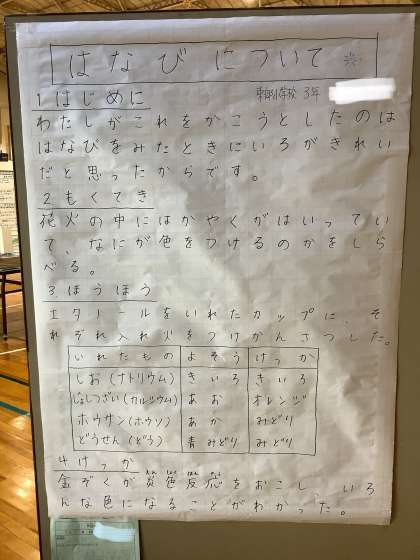 はなびについて
小学校 3年
1 はじめに
わたしがこれをかこうとしたのは
はなびをみたときにいろがきれい
だと思ったからです。
2 もくてき
花火の中にはかやくがはいってい
て、なにが色をつけるのかをしら
べる。
3 ほうほう
エタノールをいれたカップに、そ
れぞれ入れ火をつけかんさつした。
いれたもの よそう けっか
しお(ナトリウム) きいろ きいろ
じょしつざい(カルシウム) あお オレンジ
ホウサン(ホウソ) あか みどり
どうせん(どう) 青みどり みどり
4 けっか
金ぞくが炎色反応をおこし いろ
んな色になることがわかった。